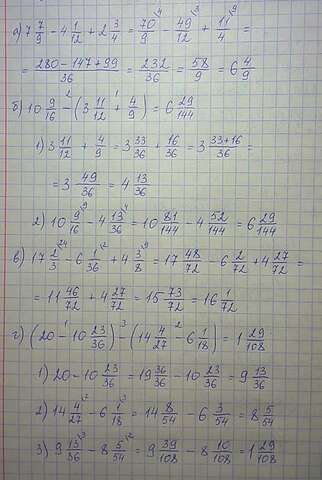 а) 7 7/9 - 4 1/12 + 2 3/4 = 70/9 ⁴ - 49/12 ³ + 11/4 ⁹ =
= 280-147+99/36 = 232/36 = 58/9 = 6 4/9
б) 10 9/16 -² (3 11/12 +¹ 4/9) = 6 29/144
1) 3 11/12 + 4/9 = 3 33/36 + 16/36 = 3 33+16/36 =
= 3 49/36 = 4 13/36
2) 10 9/16 ⁹ - 4 13/36 ⁴ = 10 81/144 - 4 52/144 = 6 29/144
в) 17 2/3 ²⁴ - 6 1/36 ² + 4 3/8 ⁹ = 17 48/72 - 6 2/72 + 4 27/72 =
= 11 46/72 + 4 27/72 = 15 73/72 = 16 1/72
г) (20 -¹ 10 23/36) -³ (14 4/27 -² 6 1/18) = 1 29/108
1) 20 - 10 23/36 = 19 36/36 - 10 23/36 = 9 13/36
2) 14 4/27 ² - 6 1/18 ³ = 14 8/54 - 6 3/54 = 8 5/54
3) 9 13/36 ³ - 8 5/54 ² = 9 39/108 - 8 10/108 = 1 29/108